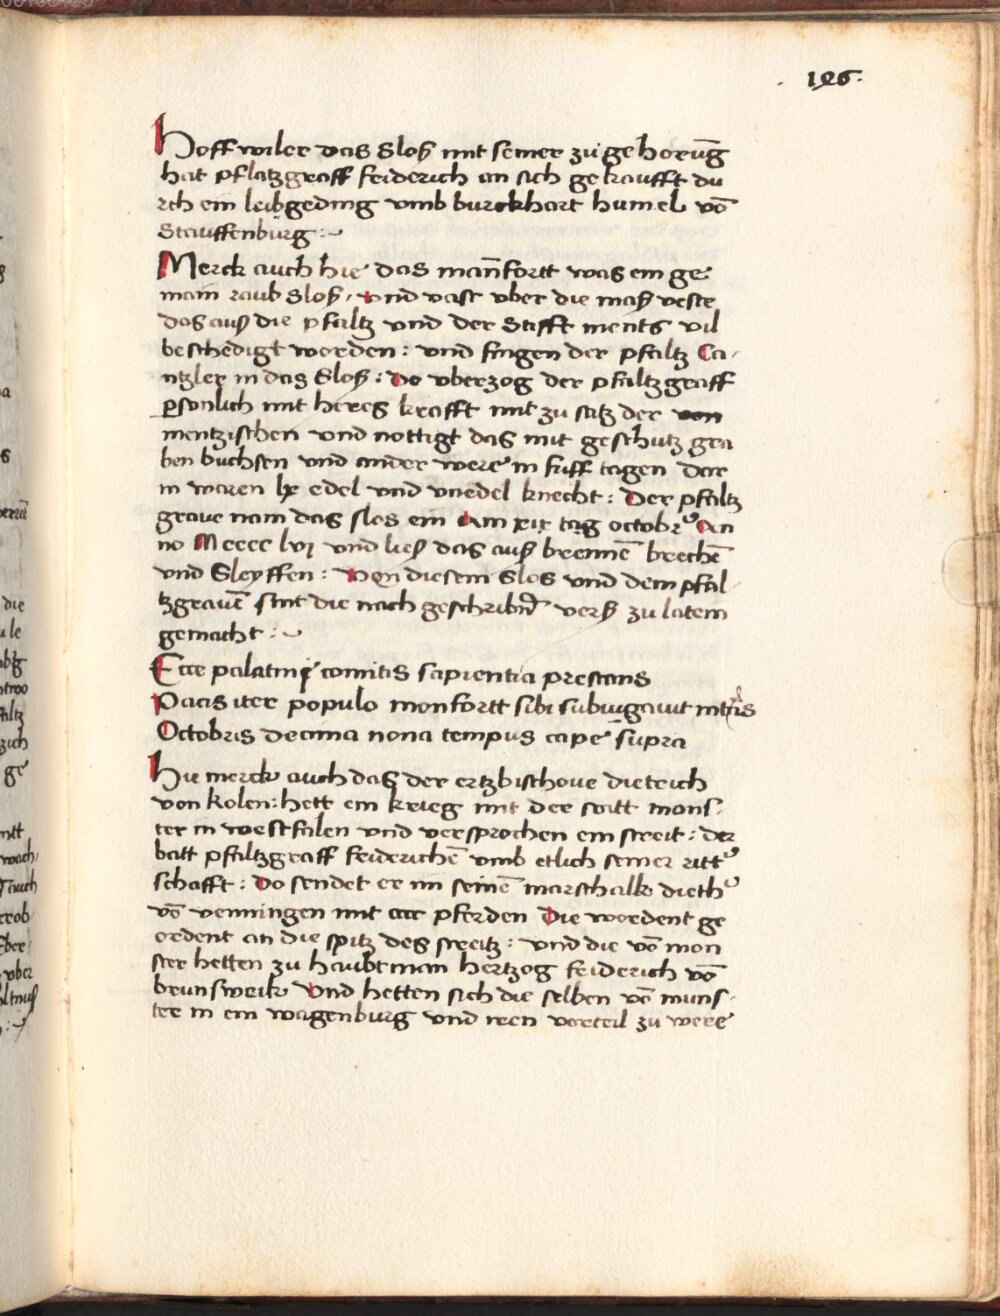 · 126 ·
Hoffwiler das Sloß mit seiner zu gehorūg
hat pfaltzgraff feiderich an sich gekaufft du
rch ein leibgeding vmb burckhart humel vō
Stauffenburg :~
Merck auch hie das mañfortt was ein ge
main raub Sloß / vnd vast vber die maß veste
das auß die pfaltz vnd der Stifft ments vil
beschedigt worden : vnd fingen der pfaltz Ca-
ntzler in das Sloß : Do vberzog der pfaltzgraff
ꝑsonlich mit heres krafft mit zu satz der
mentzischen vnd nottigt das mit geschutz gra
ben buchsen vnd ander were in fuff tagen dar
in woren lx edel vnd vnedel knecht : Der pfaltz
graue nam das slos ein Am xix tag octobrꝰ An
no Mcccc lvj vnd ließ das auß brennē brechē
vnd Sleyffen : Von diesem Slos vnd dem pfal-
tzgrauē sint die nach geschribñ verß zu latein
gemacht :~
Ecce palatini comitis sapientia prestans
Pacis iter populo monfortt sibi subiugauit
Octobris decima nona tempus cape supra
Hie merck auch das der ertzbischoue dietrich
von kolen : hett ein krieg mit der stitt mons-
ter in westfalen vnd versprochen ein streit : der
batt pfaltzgraff feiderichē vmb etlich seiner rittꝰ
schafft : Do sendet er im seinē marschalk diethꝰ
vō venningen mit ccc pferden Die wordent ge
ordent an die spitz des streitz : vnd die vō mon
ster hetten zu haubtman hertzog feiderich vō
brunsweik Vnd hetten sich die selben vō muns-
ter in ein wagenburg vnd iren vorteil zu were